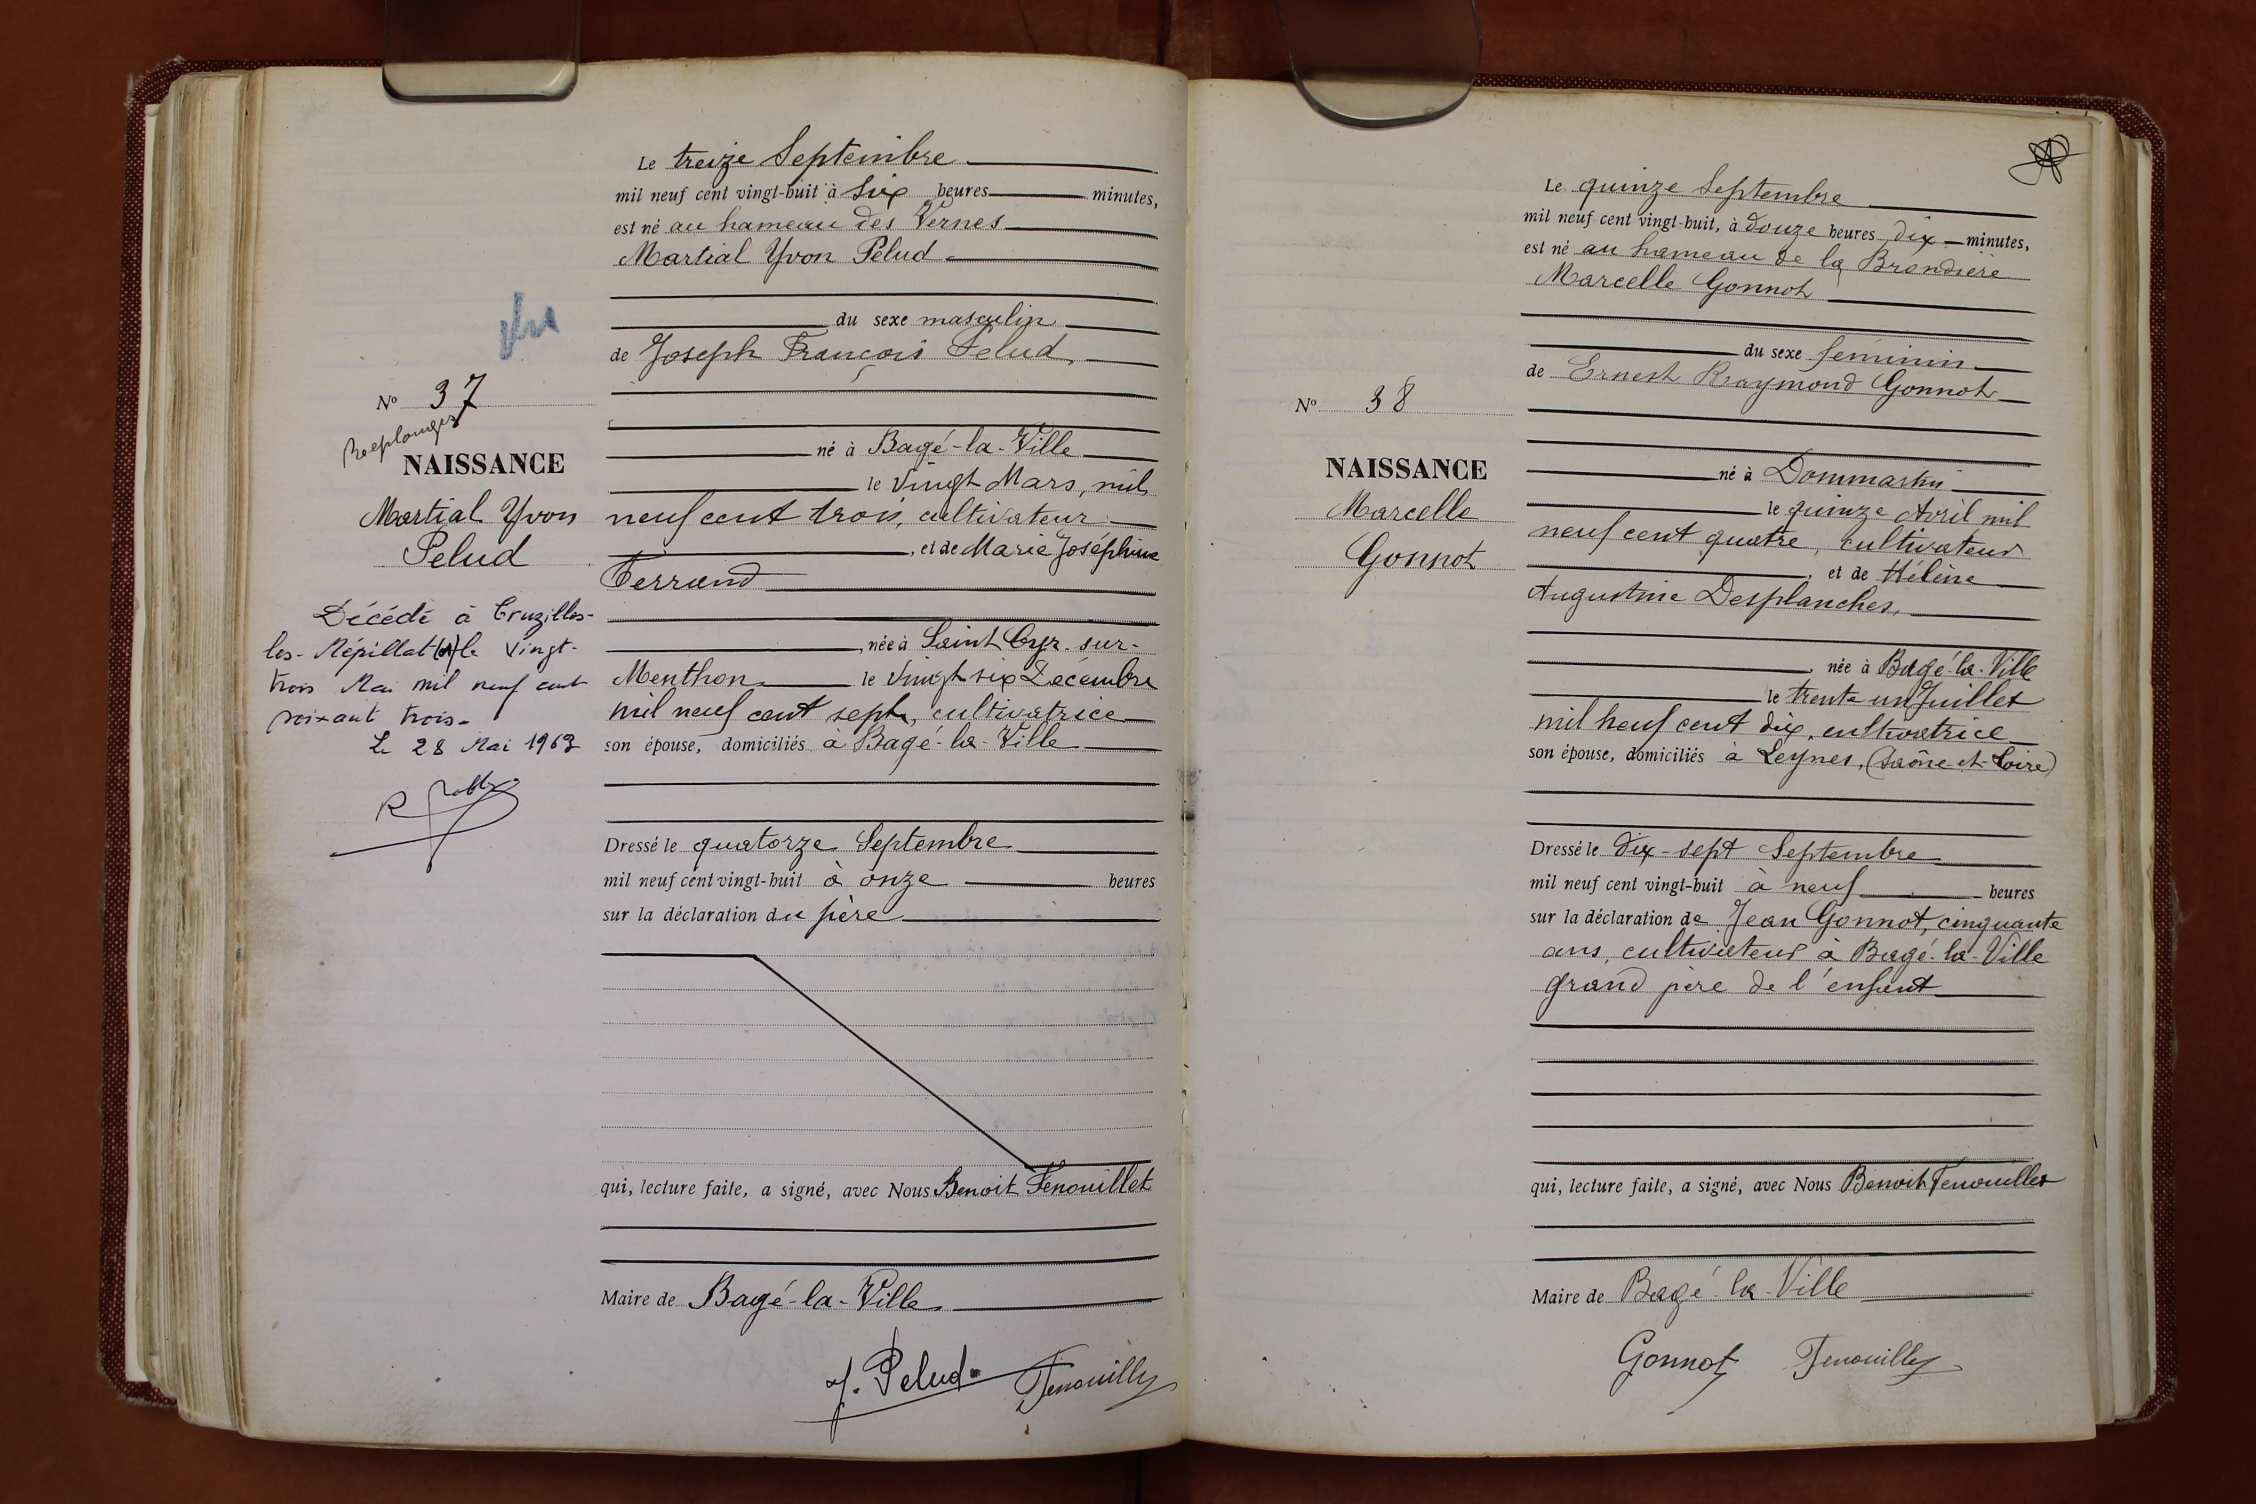 Le treize Septembre
mil neuf cent vingt-huit à six heures minutes,
est né au hameau des Vernes
Martial Yvon Pelud
du sexe masculin
de Joseph François Pelud,
né à Bagé-la-Ville
le vingt Mars, mil
neuf cent trois, cultivateur
, et de Marie Joséphine
Ferrand
, née à Saint Cyr-sur-
Menthon le vingt six Décembre
mil neuf cent sept, cultivatrice
son épouse, domiciliés à Bagé-la-Ville
Dressé le quatorze Septembre
mil neuf cent vingt-huit à onze heures
sur la déclaration du père
qui, lecture faite, a signé, avec Nous Benoit Fenouillet
Maire de Bagé-la-Ville
J. Pelud Fenouillet
vu
No 37
Replonges
NAISSANCE
Martial Yvon
Pelud
Décédé à Cruzilles-
les-Mépillat le vingt-
trois Mai mil neuf cent
soixante trois-
Le 28 Mai 1963
No 38
NAISSANCE
Marcelle
Gonnot
Le quinze Septembre
mil neuf cent vingt-huit, à douze heures dix minutes,
est né au hameau de la Brondière
Marcelle Gonnot
du sexe féminin
de Ernest Raymond Gonnot
né à Dommartin
le quinze Avril mil
neuf cent quatre, cultivateur
, et de Hélène
Augustine Desplanches,
, née à Bagé-la-Ville
le trente un Juillet
mil neuf cent dix, cultivatrice
son épouse, domiciliés à Leynes, (Saône-et-Loire)
Dressé le dix-sept Septembre
mil neuf cent vingt-huit à neuf heures
sur la déclaration de Jean Gonnot, cinquante
ans, cultivateur à Bagé-la-Ville
grand père de l'enfant
qui, lecture faite, a signé, avec Nous Benoit Fenouillet
Maire de Bagé-la-Ville
Gonnot Fenouillet